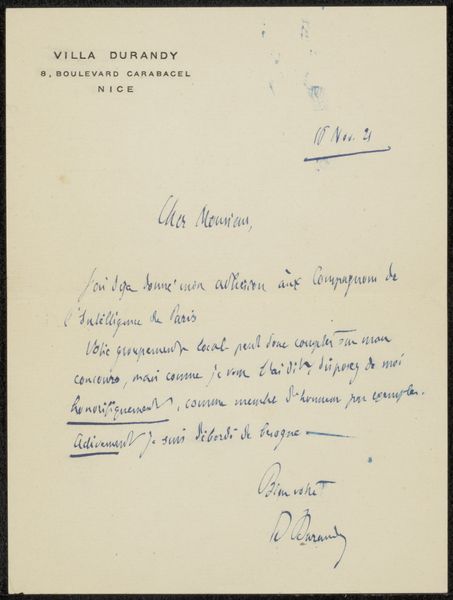 VILLA DURANDY
8, BOULEVARD CARABACEL
NICE
Nov. 21
Cher Monsieur,
J'ai déjà donné mon adhésion aux Compagnons de
l'Intelligence de Paris
Votre groupement local peut donc compter sur mon
concours, mais comme je vous l'ai dit, disposez de moi
honorifiquement, comme membre d'honneur par exemple.
Activement je suis débordé de besogne
Bien votre
D Durandy